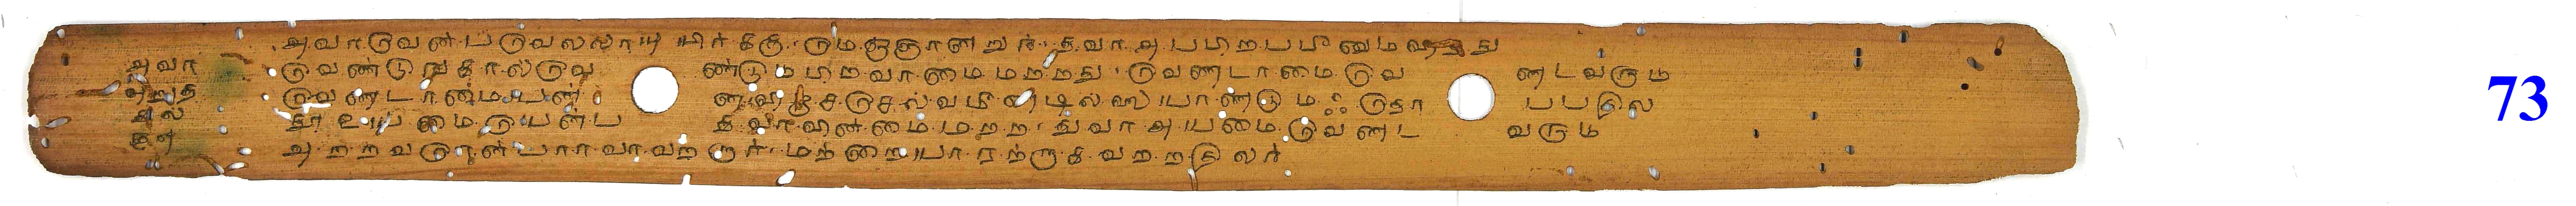 அவா அவாவென்பவெலலாவுயிர்க்கு மெஞஞானறுந் தவாஅபபிறபபீனுமவிதது
அறுத வேண்டுஙகால்வேண்டுமபிறவாமைமறறது வேணடாமைவேணடவரும
தல் வேணடாமையன்னவிழுசசெல்வமீணடில்லையாண்டும ஃதொபபதில
தூஉயமையென்பதவாவினமைமறறதுவாஅயமைவேணடவரும
அறறவரென்பாரவாவறறார் மற்றையாரற்றாகவறறதிலர்